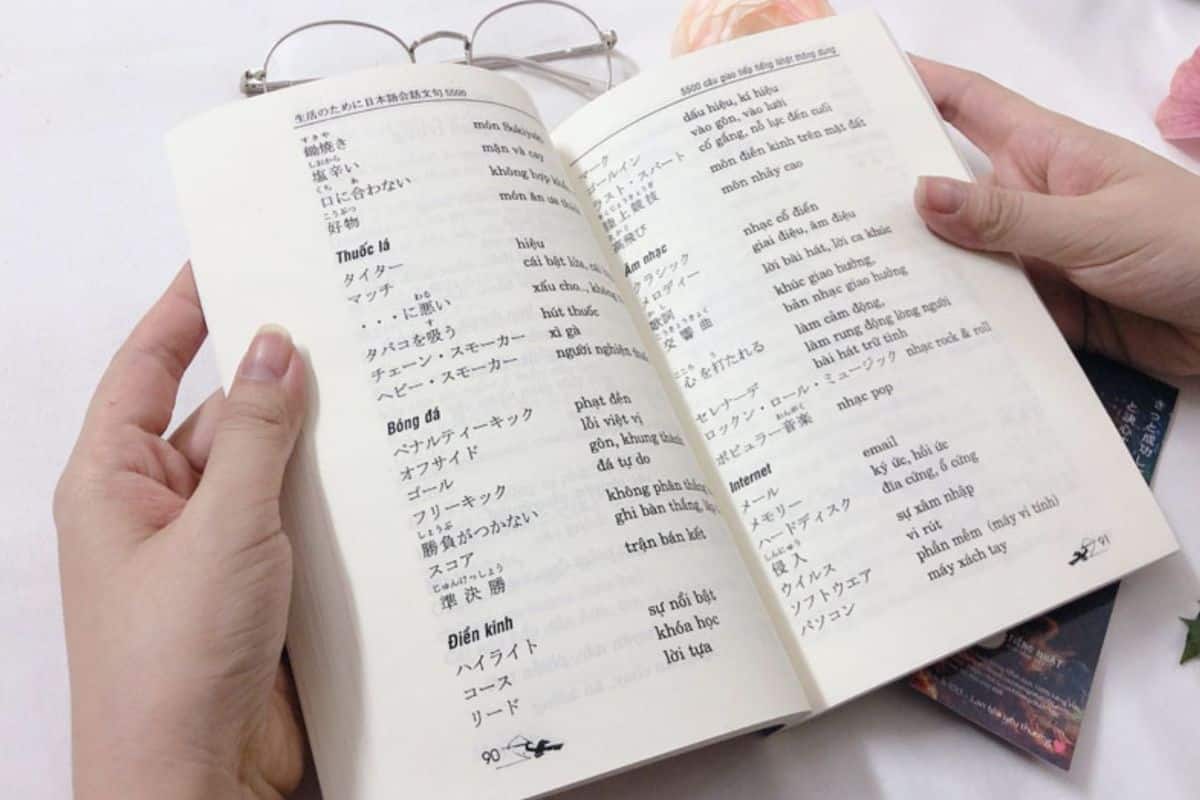 生活のために日本語会話文句 5500
すきや
鋤焼き món Sukiyaki
しおから
塩辛い mặn và cay
くち あ
口に合わない không hợp
こうぶつ
好物 món ăn ưa
Thuốc lá
タイター hiệu
マッチ cái bật lửa,
わる
・・・に悪い xấu cho..,
す
タバコを吸う hút thuốc
チェーン・スモーカー xì gà
ヘビー・スモーカー người nghiện
Bóng đá
ペナルティーキック phạt đền
オフサイド lỗi việt vị
ゴール gôn, khung thành
フリーキック đá tự do
しょうぶ
勝負がつかない không phân thắng
スコア ghi bàn thắng,
じゅんけっしょう
準決勝 trận bán kết
Điền kinh
ハイライト sự nổi bật
コース khóa học
リード lời tựa
90
5500 câu giao tiếp tiếng Nhật thông dụng
dấu hiệu, kí hiệu
ゴールイン vào gôn, vào lưới
スト・スパート cố gắng, nỗ lực đến cuối
陸上競技 môn điền kinh trên mặt đất
高飛び môn nhảy cao
Âm nhạc
クラシック nhạc cổ điển
メロディー giai điệu, âm điệu
歌詞 lời bài hát, lời ca khúc
交響曲 khúc giao hưởng,
bản nhạc giao hưởng
こころ う
心を打たれる làm cảm động,
làm rung động lòng người
セレナーデ bài hát trữ tình
ロックン・ロール・ミュージック nhạc rock & roll
おんがく
ポピュラー音楽 nhạc pop
Internet
メール email
メモリー ký ức, hồi ức
ハードディスク đĩa cứng, ổ cứng
しんにゅう
侵入 sự xâm nhập
ウイルス vi rút
ソフトウエア phần mềm (máy vi tính)
パソコン máy xách tay
91